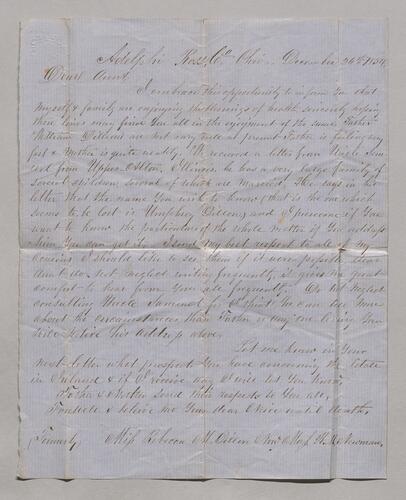 Adelphi Ross Co Ohio December 26th 1854
Dear Aunt
I embrace this opportunity to inform you that
myself & family are enjoying the blessings of health sincerely hoping
these lines may find you all in the enjoyment of the same. Father
William Dillons are not very well at present Father is failing very
fast & Mother is quite weakly. We received a letter from Uncle
from Upper Alton, Illinois. he has a very large family of
several children, several of which are married. He says in his
letter that the name you wish to know (that is the one which
seems to be lost is Umphry Dillon) and I presume if you
want to know the particulars of the whole matter if you address
him you can get it. I send my best respect to all of my
cousins I should like to see them if it were possible, dear
Aunt do not neglect writing frequently, it gives me great
comfort to hear from you all frequently. Do not neglect
consulting Uncle for I think he can tell more
about the circumstances than Father or any one living you
will his address above.
Let me know in your
next letter what prospect you have concerning the Estate
in & if I receive any I will let you know,
Father & Mother send their respects to you all,
& believe me your dear Niece until death,
Formerly Miss Rebecca M. Dillon Now Mrs. H. Newman